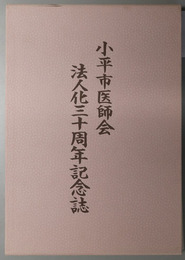 小平市医師会
法人化三十周年記念誌